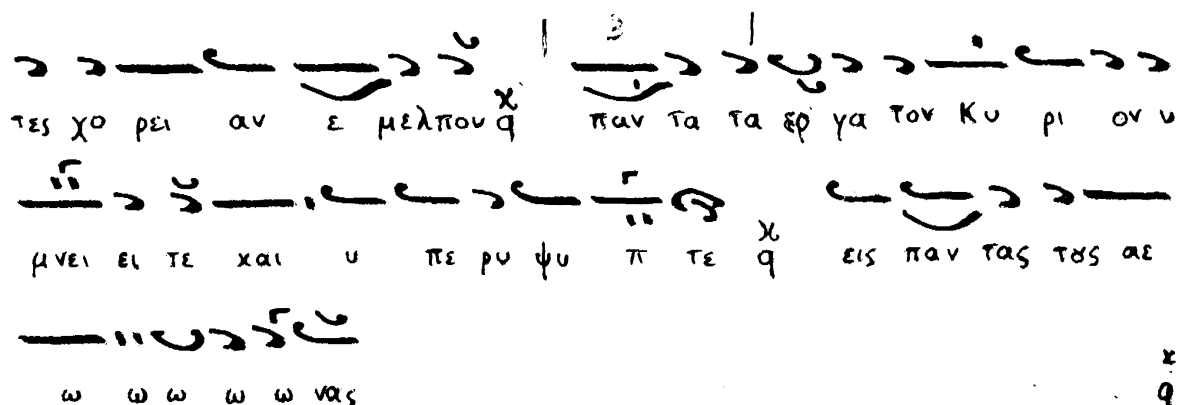 τες χο ρει αν ε μελπον q παν τα τα ερ γα τον Κυ ρι ον υ
μνει ει τε και υ πε ρυ ψυ π τε q εις παν τας τȣς αε
ω ω ω ω ω νας q